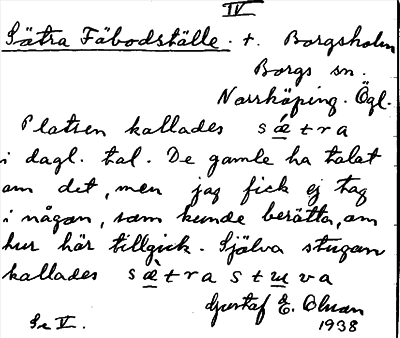 IV
Sätra Fäbodställe. t. Borgsholm
Borgs sn.
Norrköping. Ögl.
Platsen kallades sǽtra
i dagl. tal. De gamle ha talat
om det, men jag fick ej tag
i någon, som kunde berätta, om
hur här tillgick. Själva stugan
kallades sæ̀tra stuva
Gustaf E. Olsson
Se V. 1938